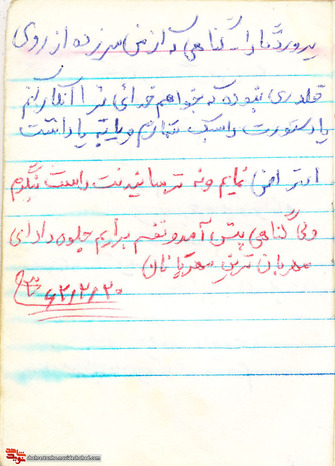 پروردگارا ـ گناهی که از من سرزده از روی
قلدری نبوده که بخواهم خدائی ترا انکار کنم
یا دستورت را سبک شمارم و یا به پاداشت
اعتراض نمایم و نه ترسانیدنت راست نگیرم
ولی گناهی پیش آمد و نفسم برایم جلوه داد ای
مهربان ترین مهربانان
۶۲/۲/۲۰